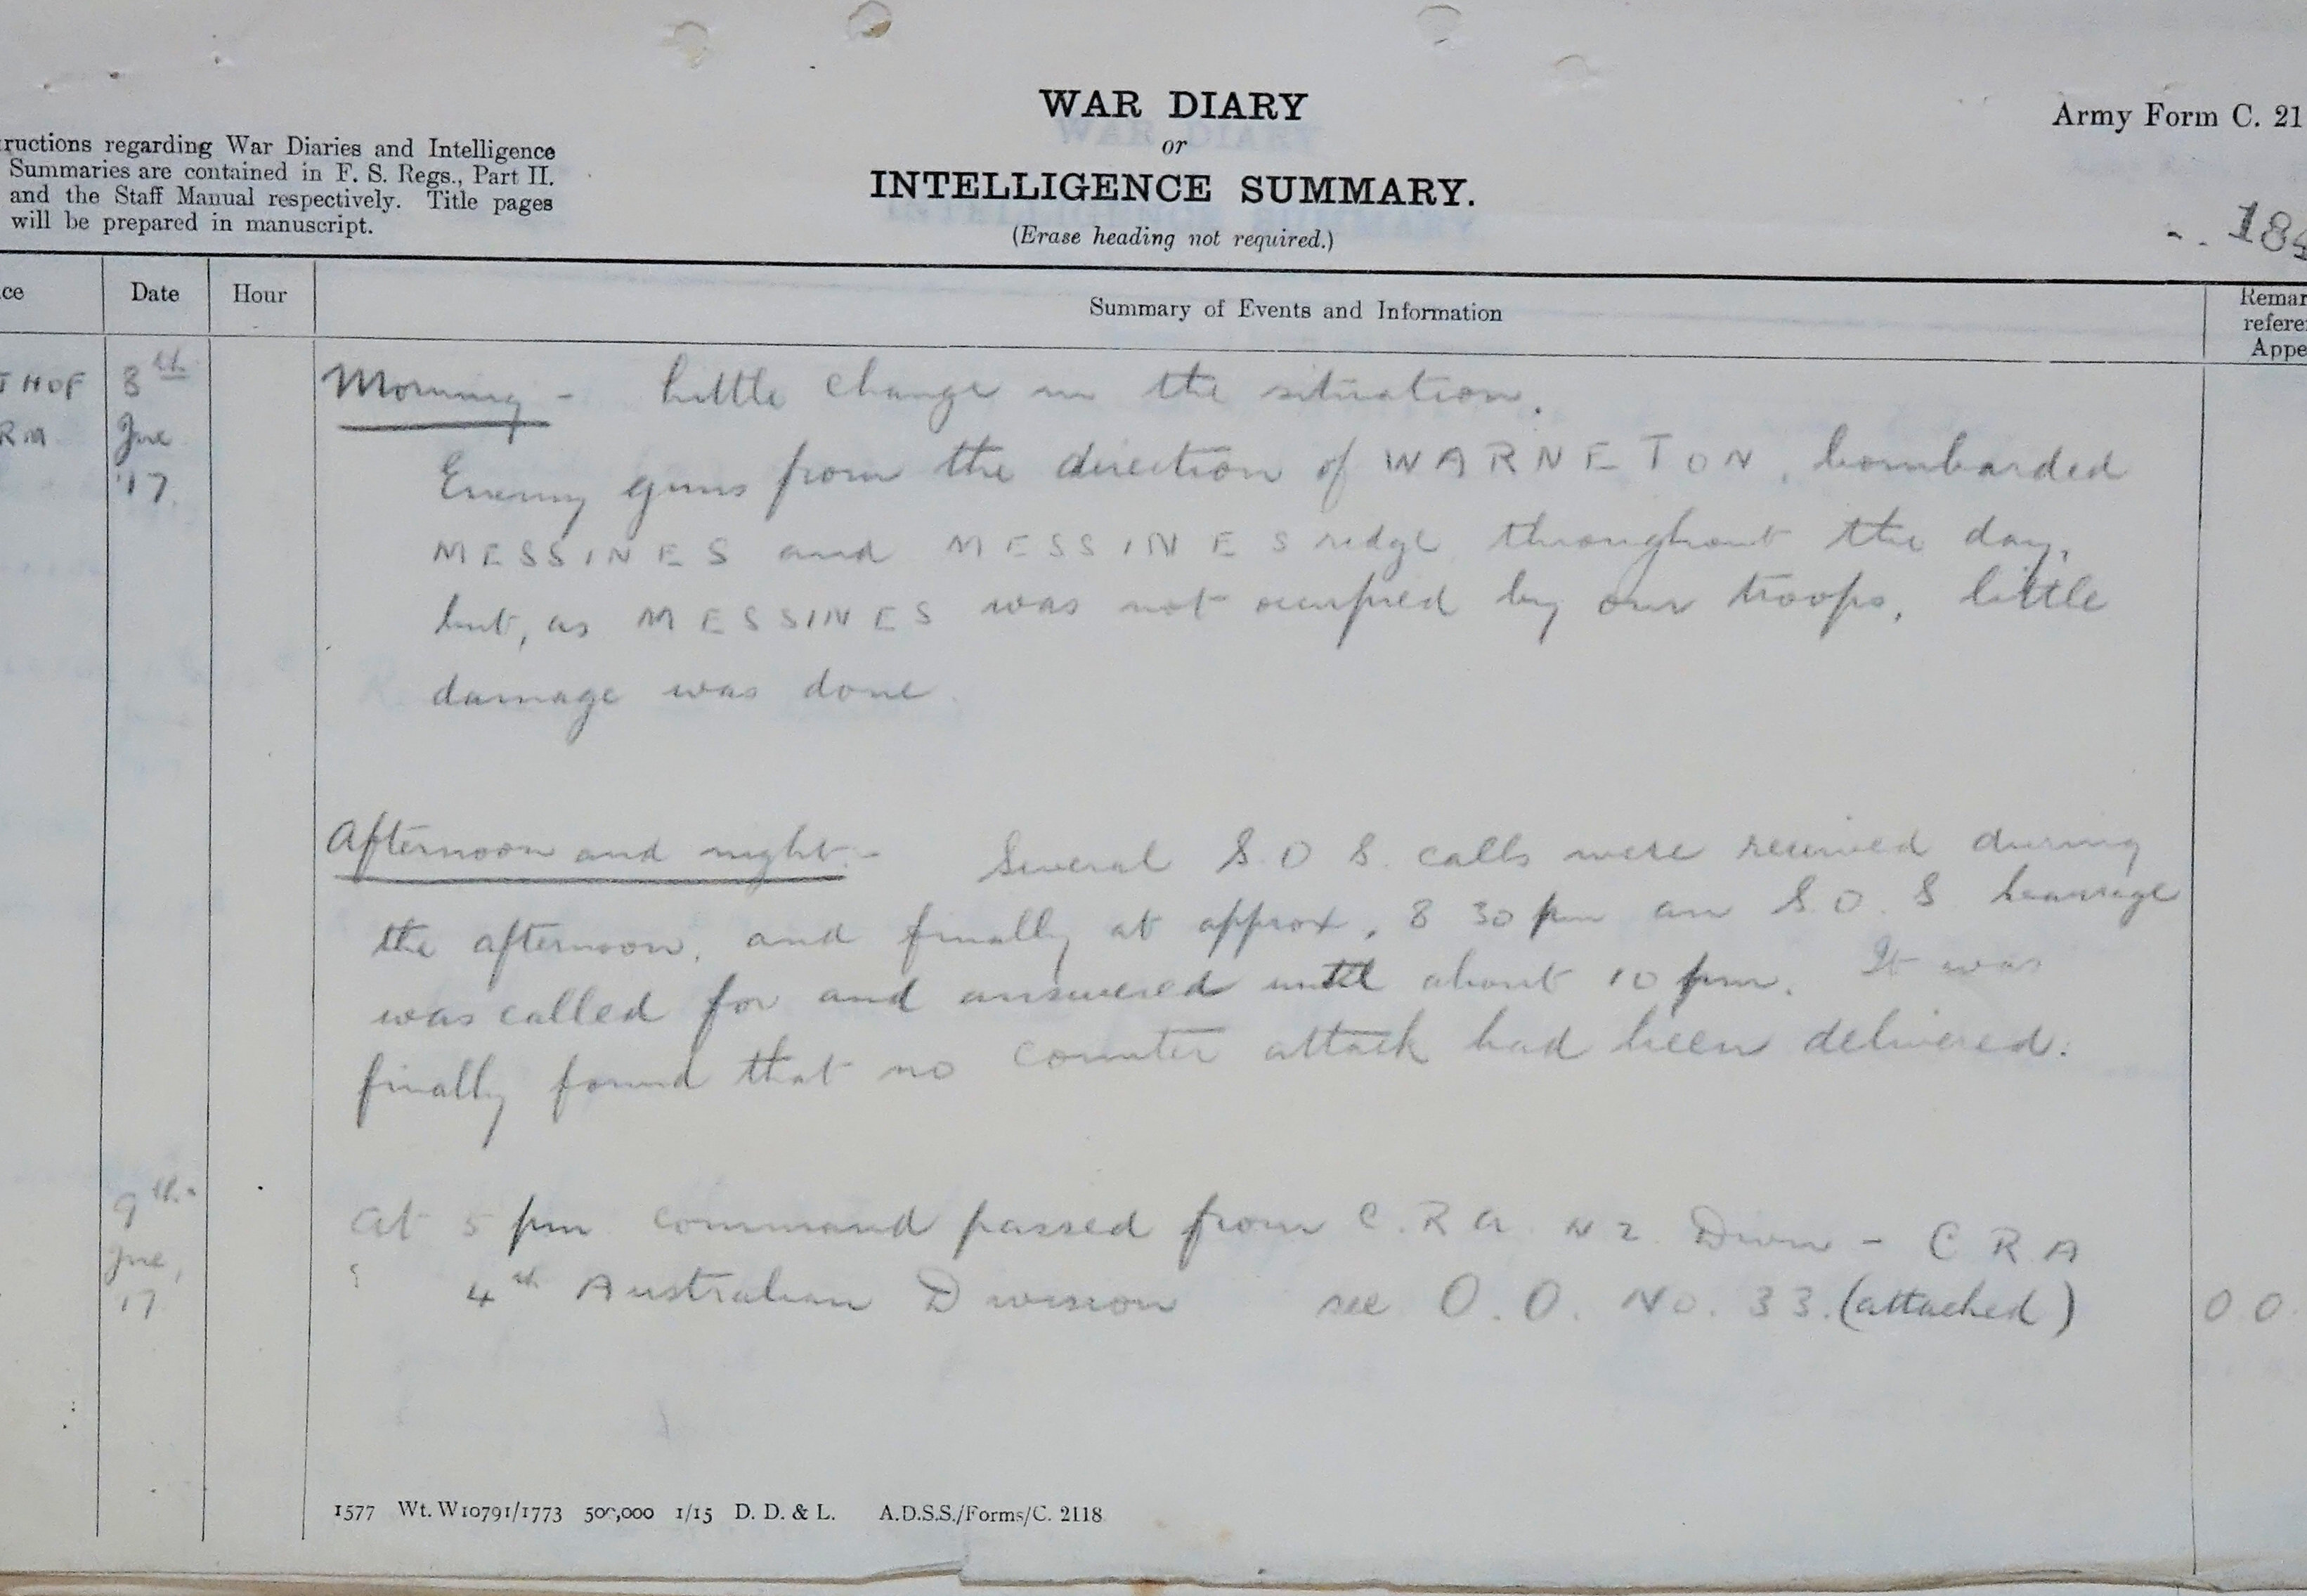 WAR DIARY
or
INTELLIGENCE SUMMARY.
(Erase heading not required.)
Army Form C. 21
ructions regarding War Diaries and Intelligence
Summaries are contained in F. S. Regs., Part II.
and the Staff Manual respectively. Title pages
will be prepared in manuscript.
ce Date Hour Summary of Events and Information
Remar
refere
Appe
T HOF 8th Morning - Little change in the situation.
RM June Enemy guns from the direction of WARNETON, bombarded
'17. MESSINES and MESSINES ridge throughout the day,
but, as MESSINES was not occupied by our troops, little
damage was done.
Afternoon and night.- Several S.O.S. calls were received during
the afternoon, and finally at approx. 8 30 pm an S.O.S barrage
was called for and answered until about 10 pm. It was
finally found that no counter attack had been delivered.
9th At 5 pm command passed from C.R.A. NZ Divn - C R A
June, 4th Australian Division see O.O. No. 33. (attached) O O.
17
1577 Wt. W10791/1773 500,000 1/15 D. D. & L. A.D.S.S./Forms/C. 2118